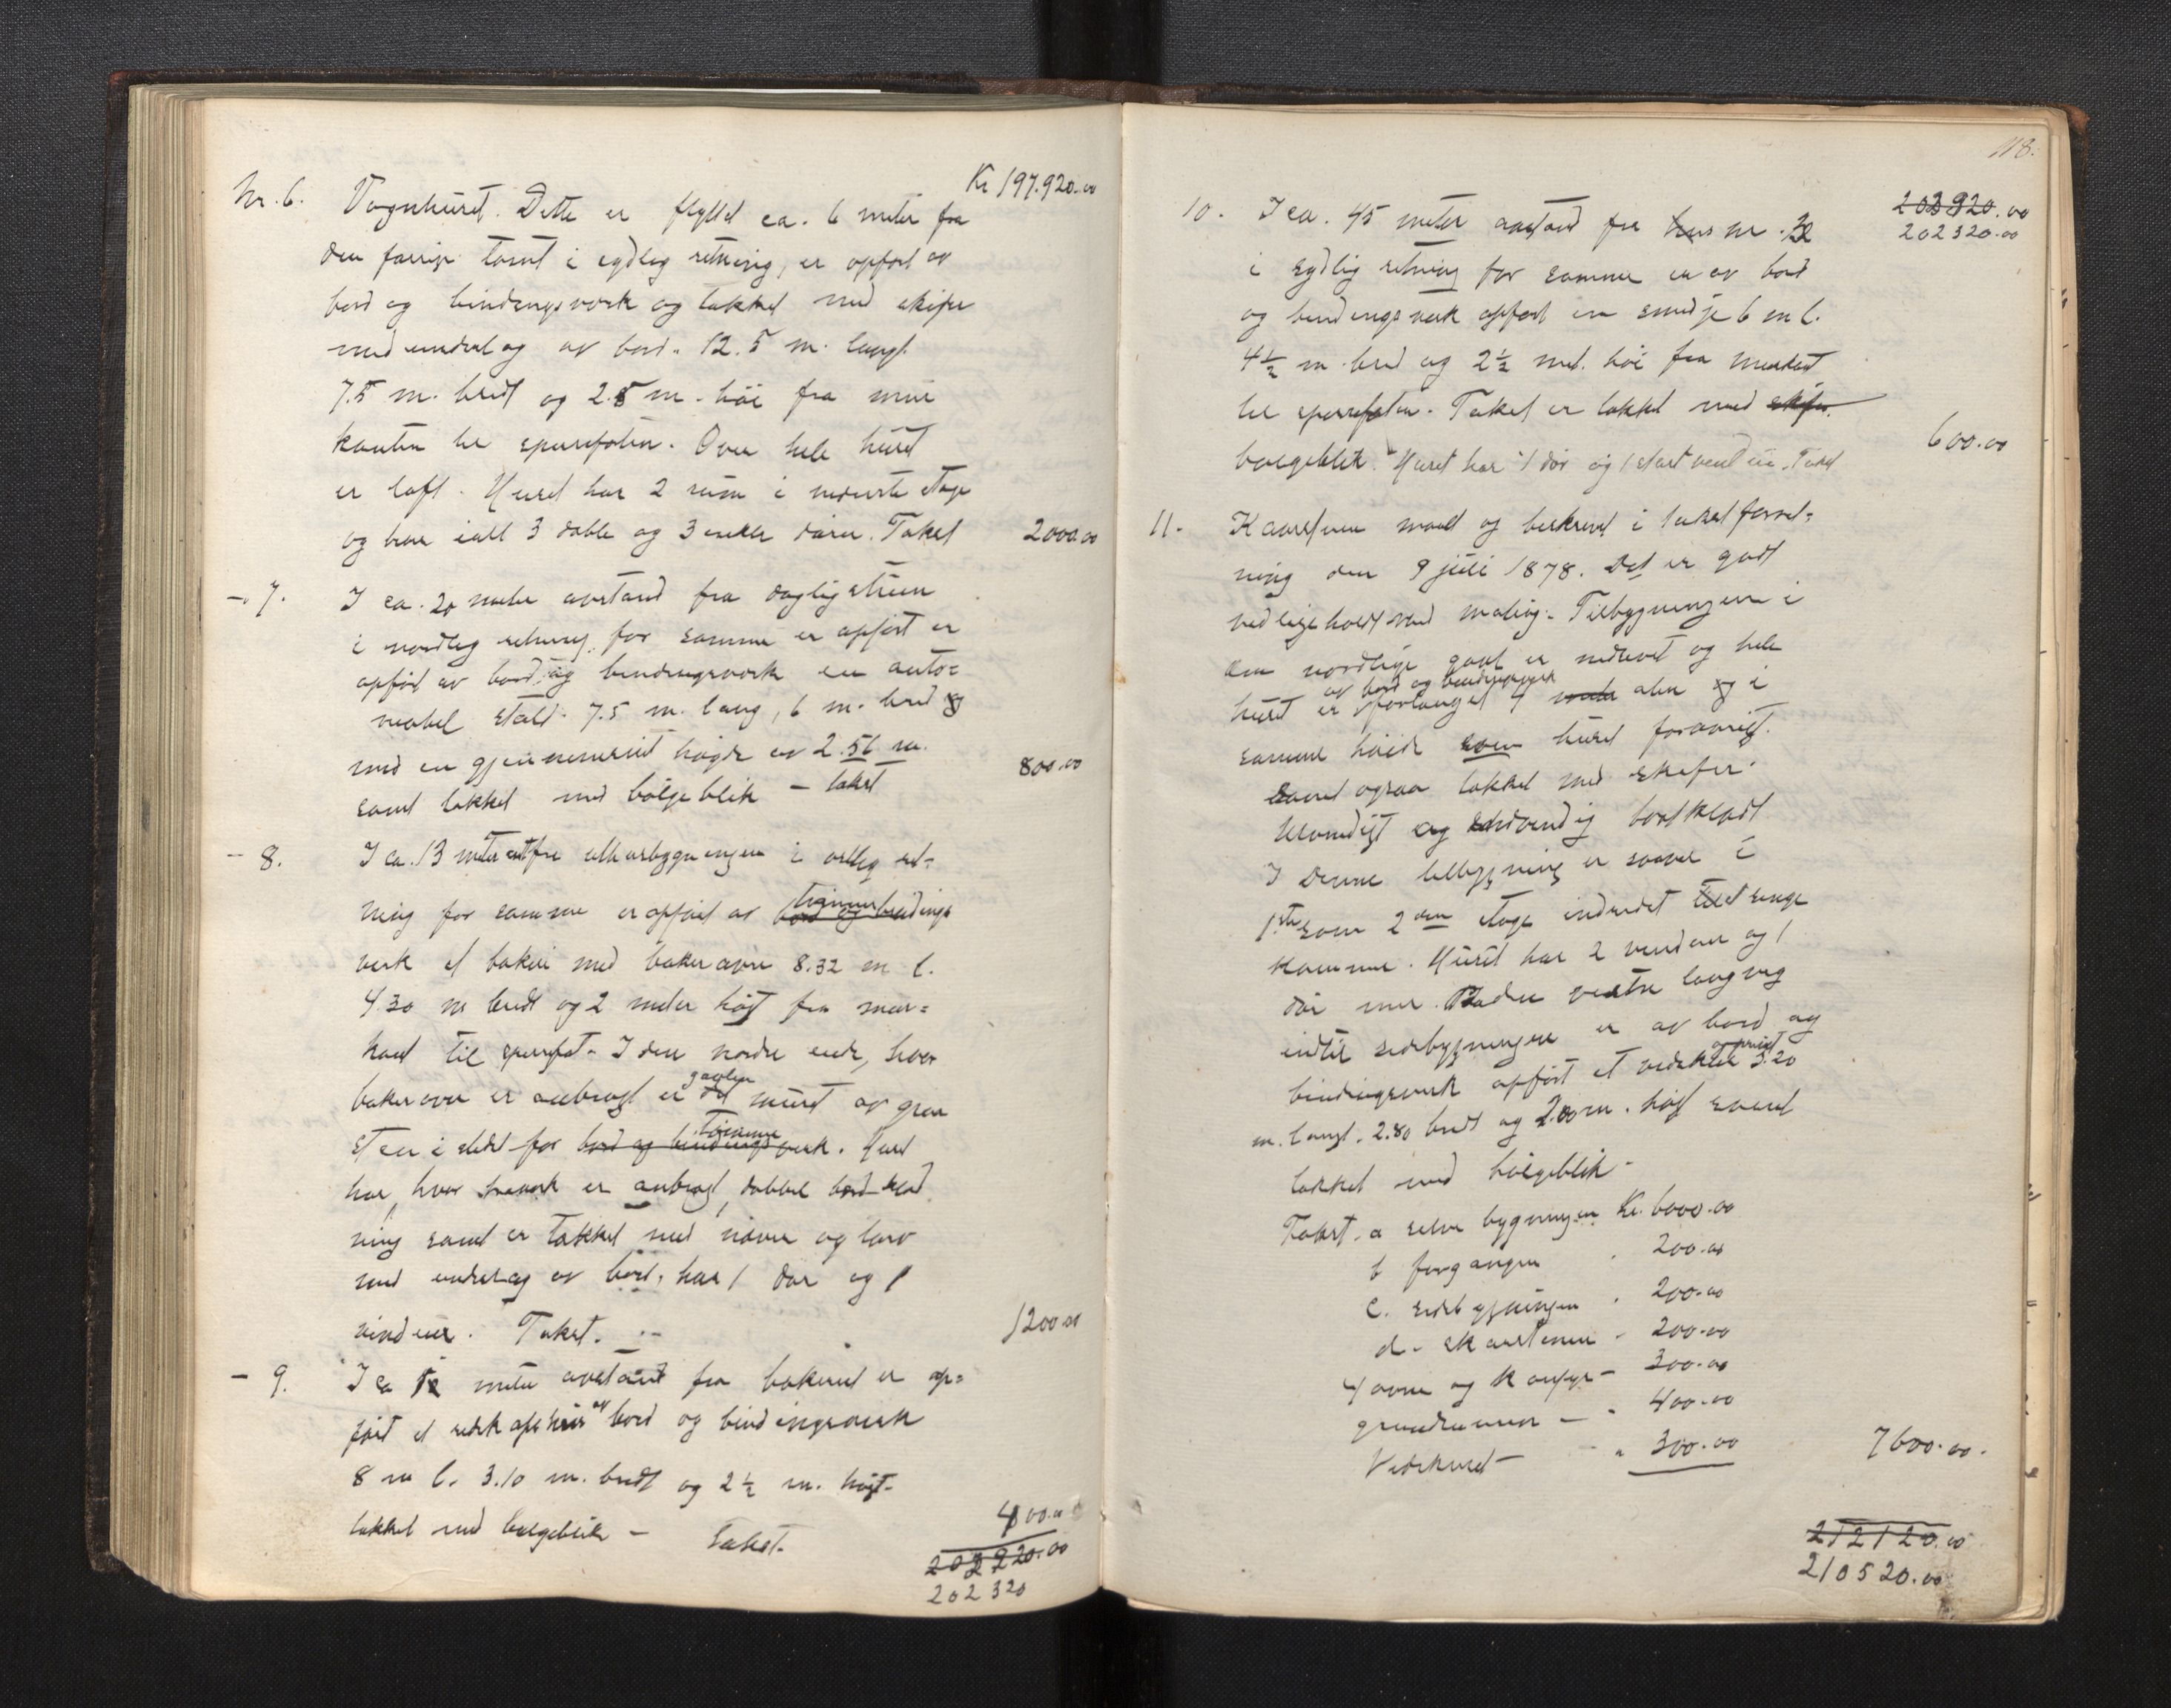 Kr 197.920.00
Nr. 6. Vognhuset. Dette er flyttet ca. 6 meter fra
den forrige tomt i sydlig retning, er opført av
bord og bindingsverk og tækket med skifer
med underlag av bord. 12.5 m. langt
7.5 m. bredt og 2.5 m. høi fra mur
kanten til sperrefoten. Over hele huset
er loft. Huset har 2 rum i nederste etage
og har ialt 3 doble og 3 enkle dører. Takst 2000.00
- 7. I ca. 20 meter avstand fra dagligstuen
i nordlig retning for samme er opført er
opført av bord og bindingsverk en auto=
mobil stald. 7.5 m. lang, 6 m. bred og
med en gjennemsnit høgde av 2.56 m.
samt tækket med bølgeblik - takst 800.00
- 8. I ca. 13 meter fra bygningen i østlig ret=
ning for samme er opført av bord og bindings tømmer
verk et bakeri med bakerovn 8.32 m l.
4.30 m bredt og 2 meter høgt fra mur=
kant til sperrefot. I den nordre ende, hvor
bakerovn er anbragt er det gavlen muret av graa
sten i stedet for bord og bindingsverk tømmer. Huset
har, hvor træverk er anbragt, dobbel bord klæd
ning samt er tækket med næver og torv
med underlag av bord, har 1 dør og 1
vindue. Takst. 1200.00
- 9. I ca 12 meter avstand fra bakeriet er op=
ført et redskapshus av bord og bindingsverk
8 m l. 3.10 m. bredt og 2 ½ m. høgt
tækket med bølgeblik - Takst. 400.00
203920.00
202320
118.
203920.00
202320.00
10. I ca. 45 meter avstand fra hus nr. 12
i sydlig retning for samme er av bord
og bindingsverk opført en smedje 6 m l.
4 ½ m. bred og 2 ½ met. høi fra murkant
til sperrefoten. Taket er tækket med skifer.
bølgeblik. Huset har 1 dør og 1 stort vindue. Takst 600.00
11. Kaarstuen maalt og beskrevet i takstforret=
ning den 9 juli 1878. Det er godt
vedligeholdt med maling. Tilbygningen i
den nordlige gavl er nedrevet og hele
huset er av bord og bindingsverk forlænget 4 meter alen og i
samme høide som huset forøvrigt.
samt ogsaa tækket med skifer.
Utvendigt og indvendig bordklædt
I denne tilbygning er saavel i
1ste som 2den etage indredet til et senge
kammer. Huset har 2 vinduer og 1
dør mer. Paa den vestre langveg
indtil sidebygningen er av bord og
bindingsverk opført et vedskur 3.20
m. langt. 2.80 bredt og 2.00 m. høgt samt
tækket med bølgeblik -
Takst. a selve bygningen Kr. 6000.00
b forgangen " 200.00
c. sidebygningen " 200.00
d. skorstenene " 200.00
4 ovne og komfyr - 300.00
grundmuren - " 400.00
Vedskuret - " 300.00 7600.00.
212120.00
210520.00